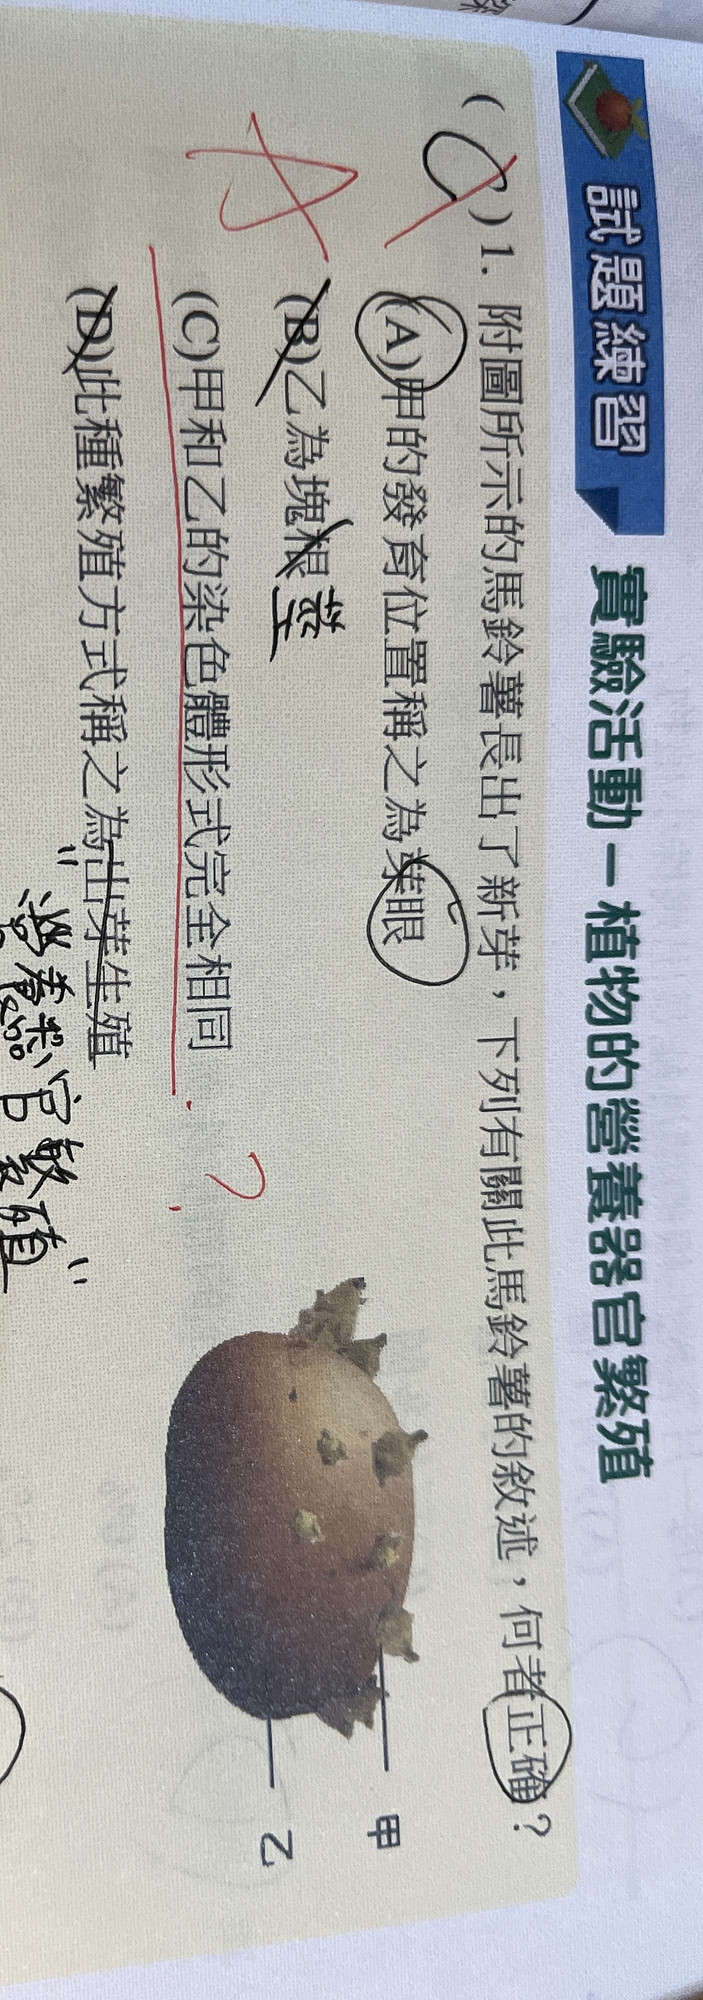 試題練習 實驗活動－植物的營養器官繁殖
( C ) 1. 附圖所示的馬鈴薯長出了新芽，下列有關此馬鈴薯的敘述，何者正確？
A
(A)甲的發育位置稱之為芽眼
(B)乙為塊根 莖
(C)甲和乙的染色體形式完全相同 ?
(D)此種繁殖方式稱之為出芽生殖
"營養器官繁殖"
甲
乙